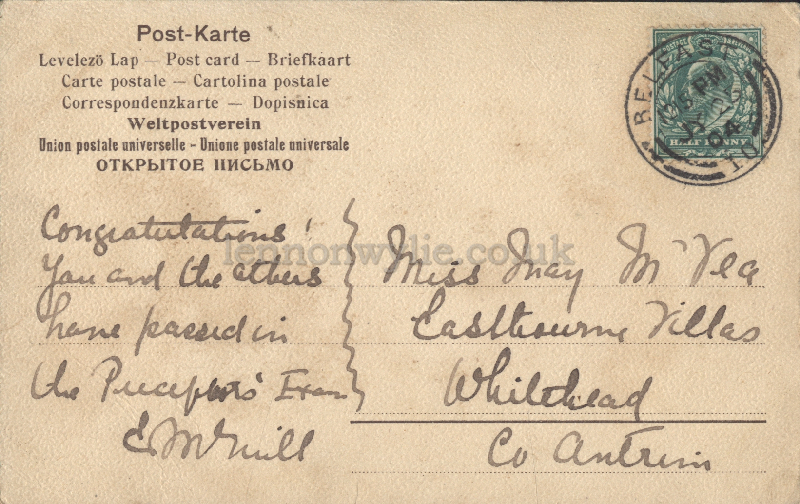 Post-Karte
Levelező Lap — Post card — Briefkaart
Carte postale — Cartolina postale
Correspondenzkarte — Dopisnica
Weltpostverein
Union postale universelle - Unione postale universale
ОТКРЫТОЕ ПИСЬМО
BELFAST
PM
04
HALF PENNY
Congratulations!
You and the others
have passed in
the Preceptors' Exam
E McNeill
Miss May McVea
Eastbourne Villas
Whitehead
Co Antrim
lennonwylie.co.uk